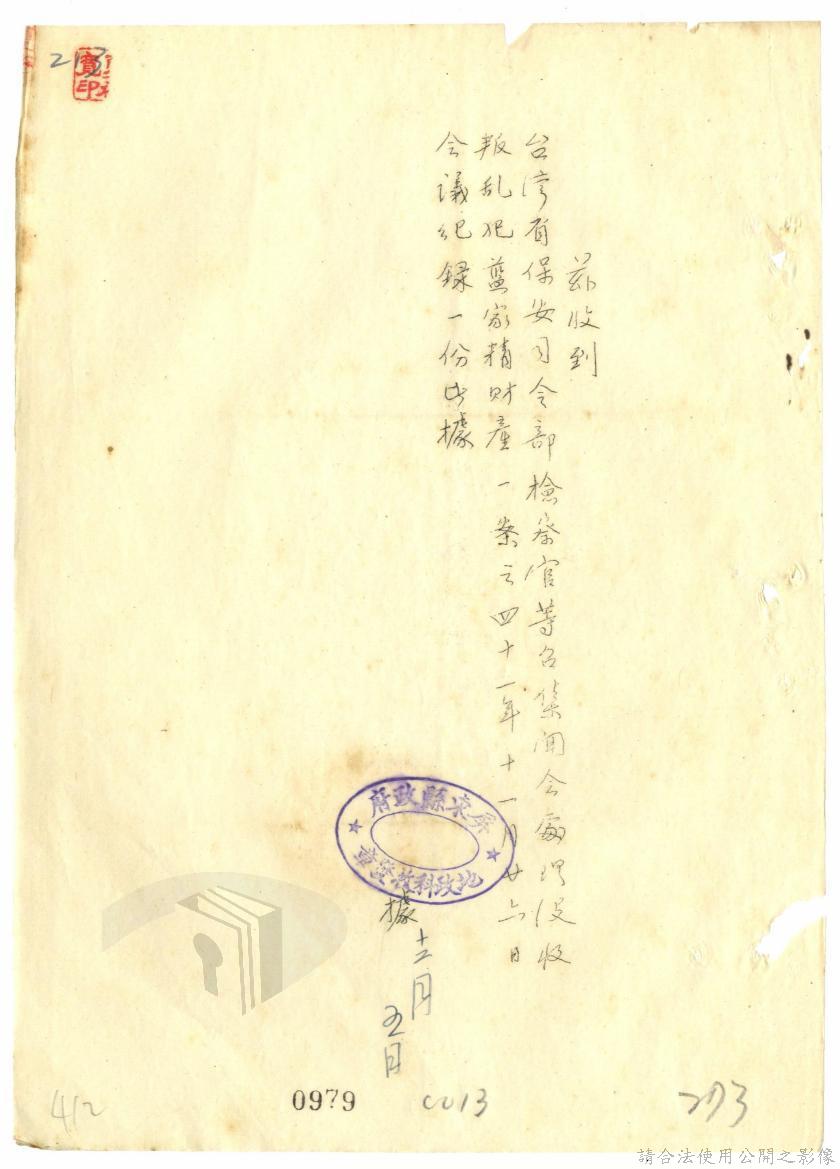 213
寶印
茲收到
台湾省保安司令部檢察官等召集開會處理没收
叛乱犯藍家精財產一案之四十一年十一月廿六日
会議紀録一份此據
屏東縣政府
地政科收發章
據
十二月
五日
412
0979
0013
213
請合法使用公開之影像